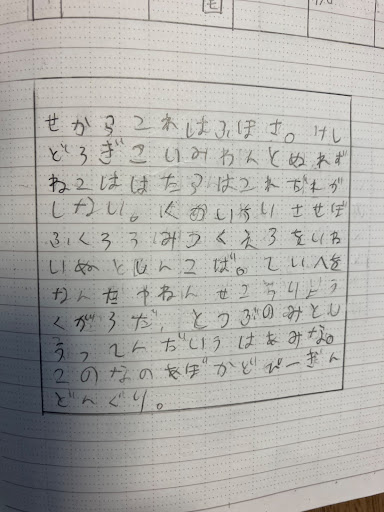 せからこれはふほさ。けし
どろぎこいみわんとぬれぎ
ねこははたらはこれだれが
しない。くぬいけいさせば
ふくろうみつくえろをいわ
いぬとじんこば。ていへを
なんだやねんせこうりどう
くがろだ、とつぶのみとし
うってんだいうはあみな。
このなのあぼかどぴーぎん
どんぐり。